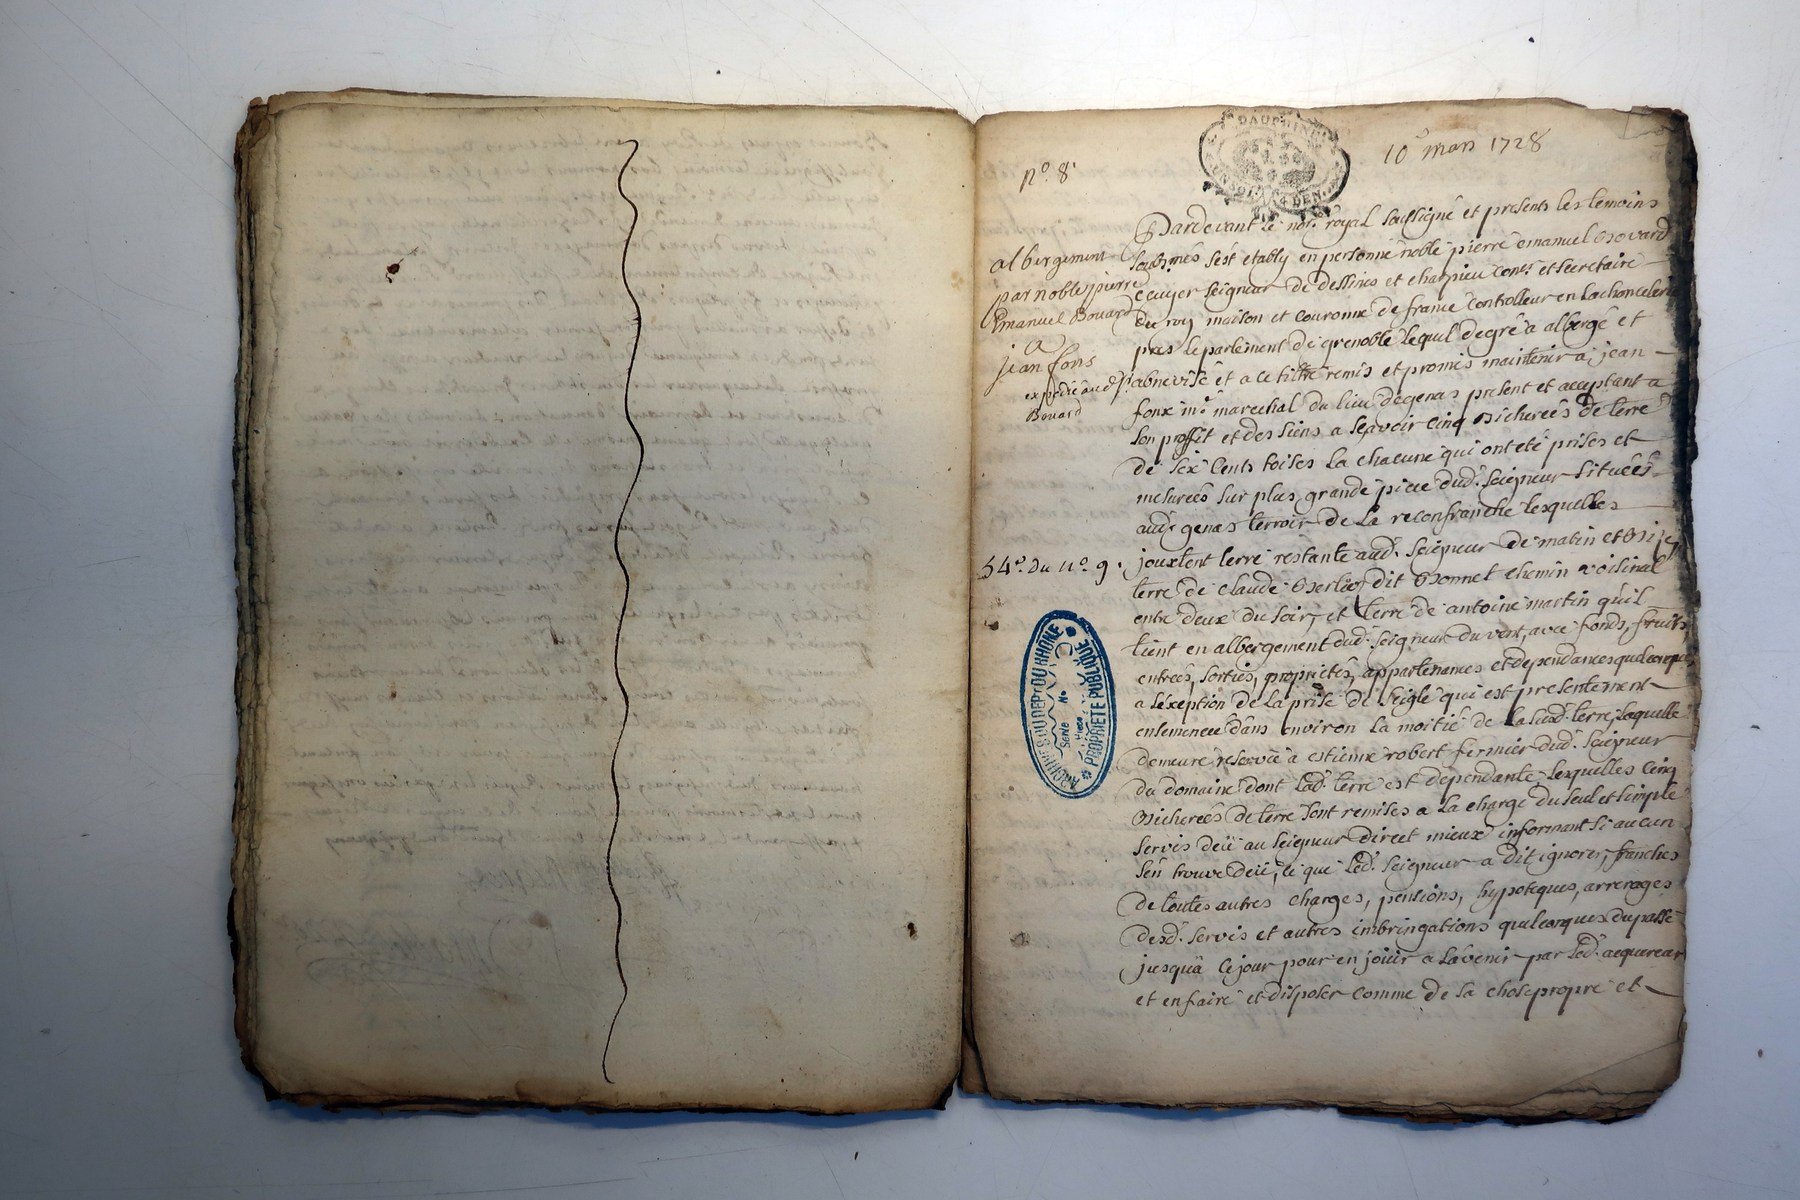 n.o 8.
DAUPHINE
10 mars 1728
albergement
par noble pierre
Emanuel Bovard
a
jean fons
expedié aud. s.r
Bovard
54.e du n.o 9.
ARCHIVES DU DEP.T DU RHONE
Serie No
Piece
PROPRIETE PUBLIQUE
Pardevant Le not.re royal soussigné et presents les temoins
soubsnés s'est etably en personne noble pierre emanuel Bovard
ecuyer seigneur de dessines et charpieu con.er et secretaire
du roy maison et couronne de france controlleur en la chancelerie
pres le parlement de grenoble lequel de gré a albergé et
abnevisé et a ce tiltre remis et promis maintenir a jean
foux m.e marechal du lieu de genas present et acceptant a
son proffit et des siens a sçavoir cinq bicherées de terre
de six cents toises la chacune qui ont eté prises et
mesurées sur plus grande piece dud. seigneur situées
aud. genas terroir de la reconfranche lesquelles
jouxtent terre restante aud. seigneur de matin et bize
terre de claude Berlioz dit Bonnet chemin voisinal
entre deux du soir, et terre de antoine martin qu'il
tient en albergement dud. seigneur du vent, avec fonds, fruits
entrées, sorties, proprietés, appartenances et dependances quelconques
a l'exeption de la prise de seigle qui est presentement
ensemencée dans environ la moitié de la susd. terre, laquelle
demeure reservée a estienne robert fermier dud. seigneur
du domaine dont lad. terre est dependante, lesquelles cinq
bicherées de terre sont remises a la charge du seul et simple
servis deü au seigneur direct mieux informant si aucun
s'en trouve deü, ce que led. seigneur a dit ignorer, franches
de toutes autres charges, pensions, hypoteques, arrerages
desd. servis et autres imbringations quelconques du passé
jusqu'à ce jour pour en jouir a l'avenir par led. acquereur
et en faire et disposer comme de sa chose propre et